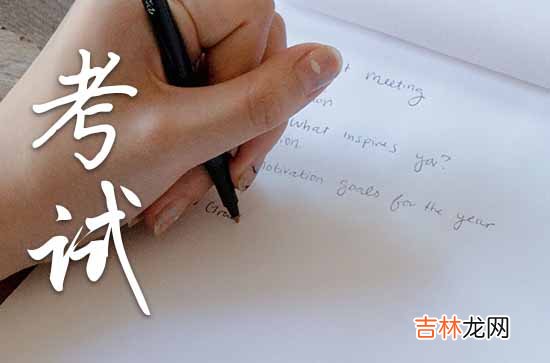 考试
meeting
what inspires ya?
motivation goals for the year
Gra
吉林龙网